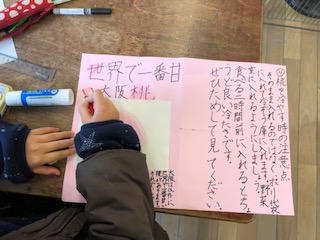 世界で一番甘
い大阪桃
桃を冷やす時の注意点
そのまま入れるのではなく、ポリ袋
に入れ冷ぞう庫に入れます。野菜
室に入れるようにしましょう。
食べる二時間前に入れるとちょ
うど良い冷たさです。
ぜひためして見てください。